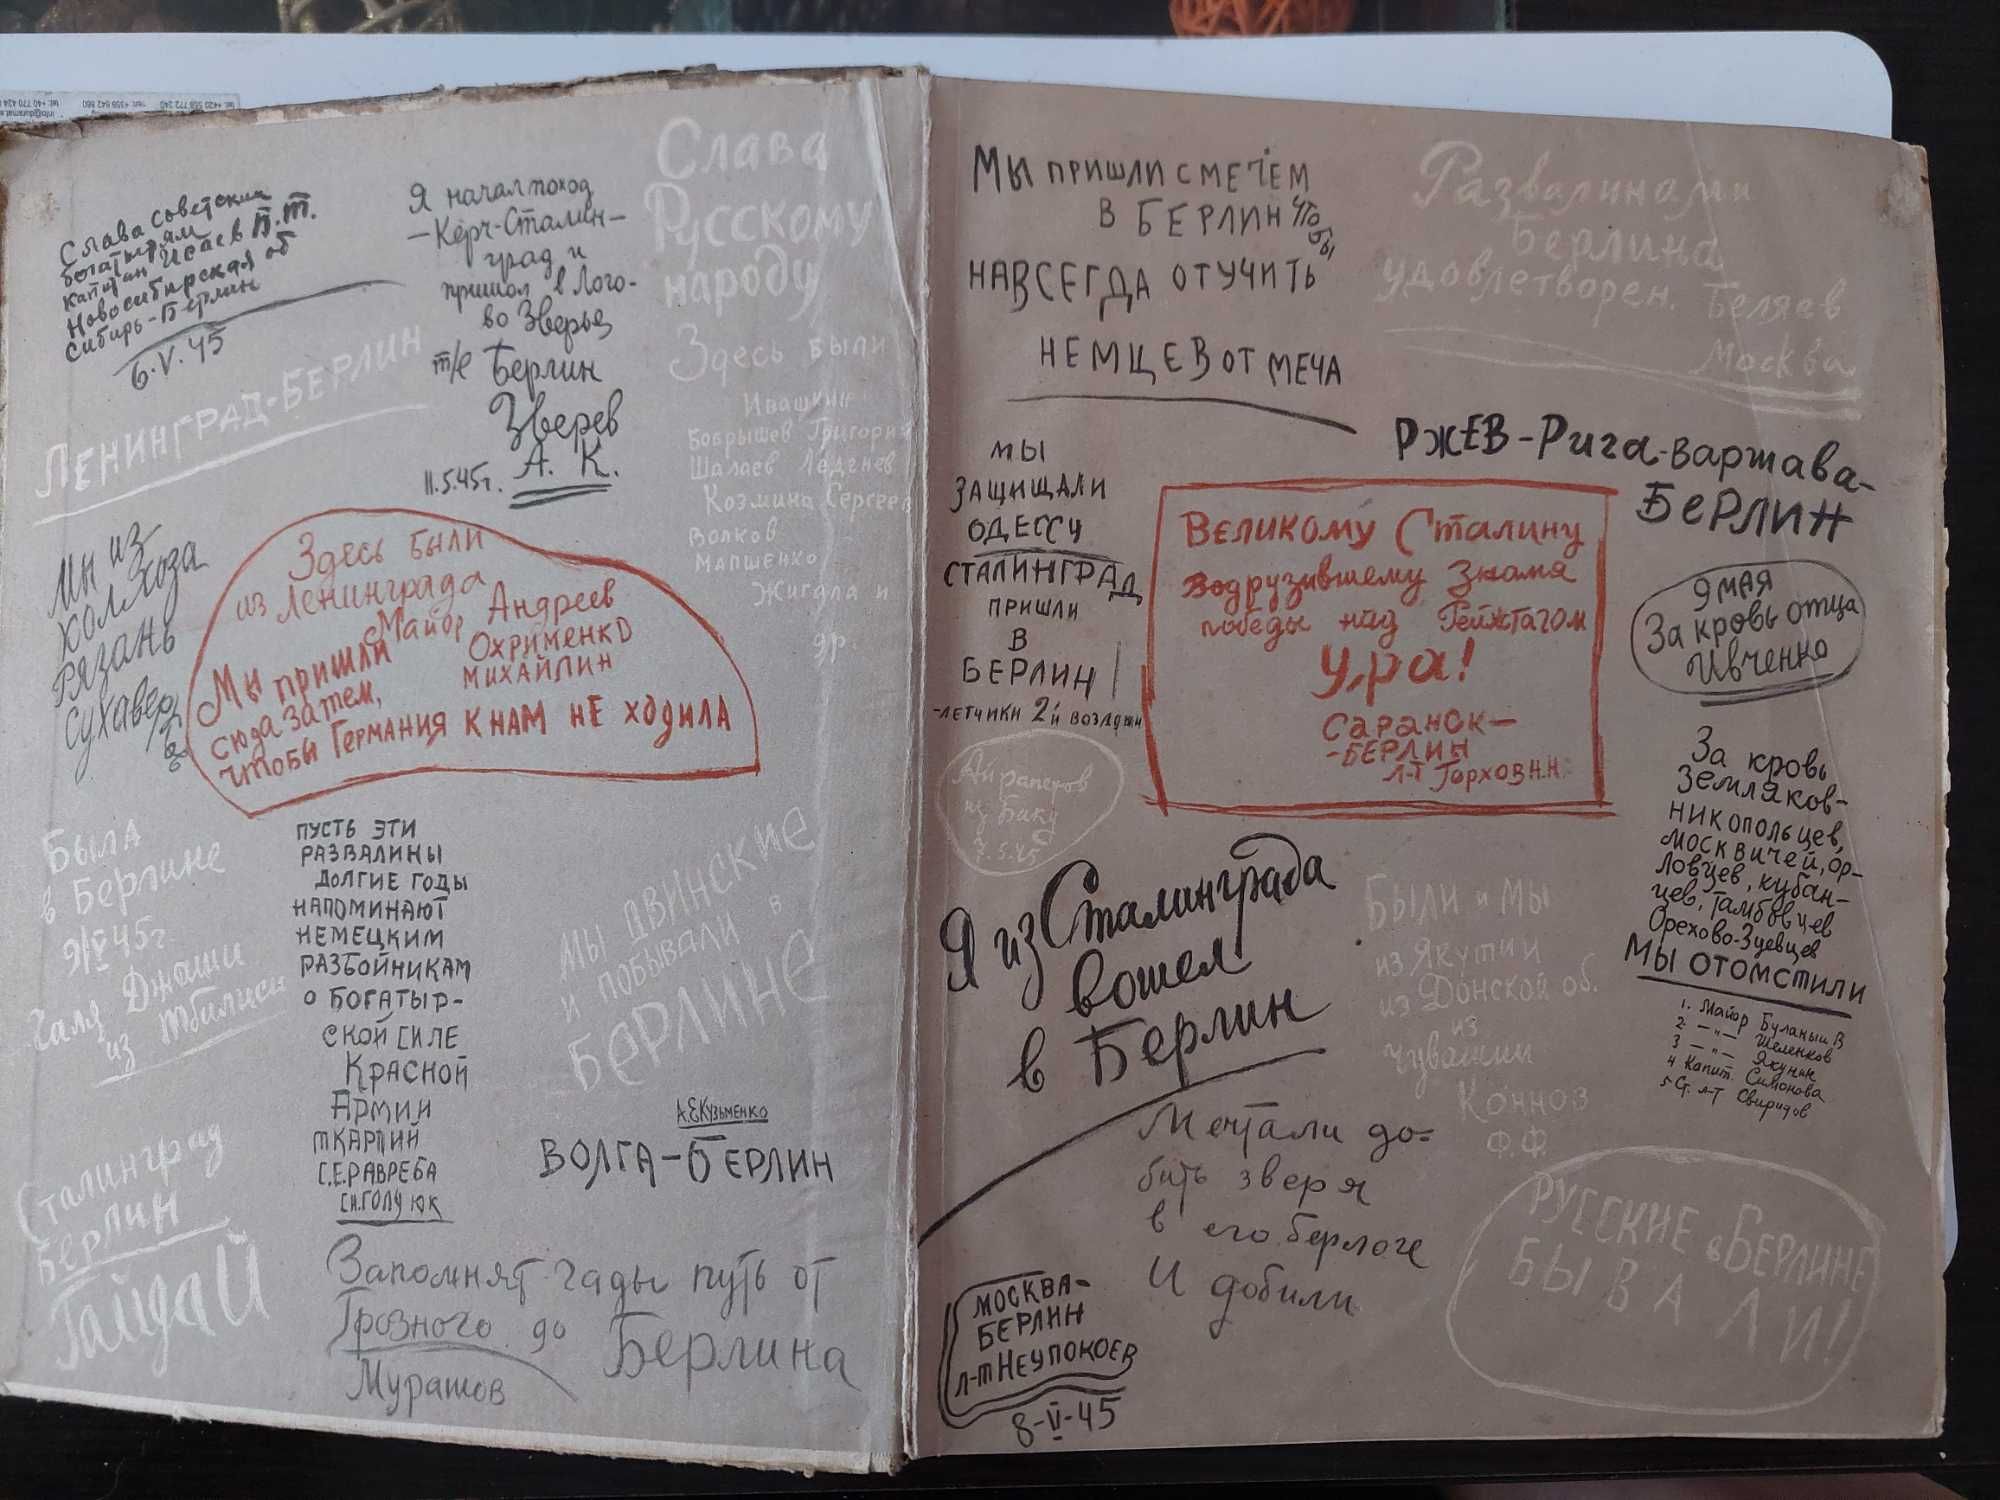 Слава советским
богатырям
капитан Исаев П.Т.
Новосибирская об
Сибирь-Берлин
6.V.45
Я начал поход
-Керч-Сталин-
град и
пришол в Лого-
во Зверье
т/е Берлин
Зверев
А. К.
11.5.45г.
Слава
Русскому
народу
Здесь были
Ивашкин
Бобрышев Григорий
Шалаев
Козмина Сергеев
Волков
Мапшенко
Жигала и
др.
ЛЕНИНГРАД-БЕРЛИН
Мы из
колхоза
Рязань
Здесь были
из Ленинграда
Майор Андреев
Охрименко
Михайлин
Мы пришли
сюда затем,
чтобы Германия к нам не ходила
Была
в Берлине
9/V 45г
Галя Джаши
из Тбилиси
ПУСТЬ ЭТИ
РАЗВАЛИНЫ
ДОЛГИЕ ГОДЫ
НАПОМИНАЮТ
НЕМЕЦКИМ
РАЗБОЙНИКАМ
О БОГАТЫР-
СКОЙ СИЛЕ
КРАСНОЙ
АРМИИ
С.Е.РАВРЕБА
МЫ ДВИНСКИЕ
И ПОБЫВАЛИ В
БЕРЛИНЕ
А.Е.Кузьменко
ВОЛГА-БЕРЛИН
Сталинград
Берлин
Гайдай
Запомнят гады путь от
Грозного до
Берлина
Мурашов
МЫ ПРИШЛИ С МЕЧЕМ
В БЕРЛИН ЧТОБЫ
НАВСЕГДА ОТУЧИТЬ
НЕМЦЕВ ОТ МЕЧА
Развалинами
Берлина
удовлетворен. Беляев
Москва
РЖЕВ-Рига-варшава-
БЕРЛИН
МЫ
ЗАЩИЩАЛИ
ОДЕССУ
СТАЛИНГРАД
ПРИШЛИ
В
БЕРЛИН
-ЛЕТЧИКИ 2й
ВЕЛИКОМУ Сталину
водрузившему Знамя
победы над Рейхстагом
Ура!
САРАНСК-
-БЕРЛИН
Л-Т Горхов Н.Н.
9 МАЯ
За кровь отца
Ивченко
Айрапетов
из Баку
7.5.45
Я из Сталинграда
вошел
в Берлин
Были и Мы
из Якутии
из Донской об.
из
Чувашии
Коннов
Ф.Ф.
За кровь
Земляков-
никопольцев,
москвичей, ор-
ловцев, кубан-
цев, Тамбовцев
Орехово-Зуевцев
МЫ ОТОМСТИЛИ
1. Майор Буланый В
2. -„- Шеленков
3 -„- Якунин
4 Капит. Симонова
5 Ст. Л-Т Свиридов
Мечтали до-
бить зверя
в его берлоге
И добили
МОСКВА-
БЕРЛИН
Л-Т НЕУПОКОЕВ
8-V-45
РУССКИЕ в БЕРЛИНЕ
БЫВАЛИ!